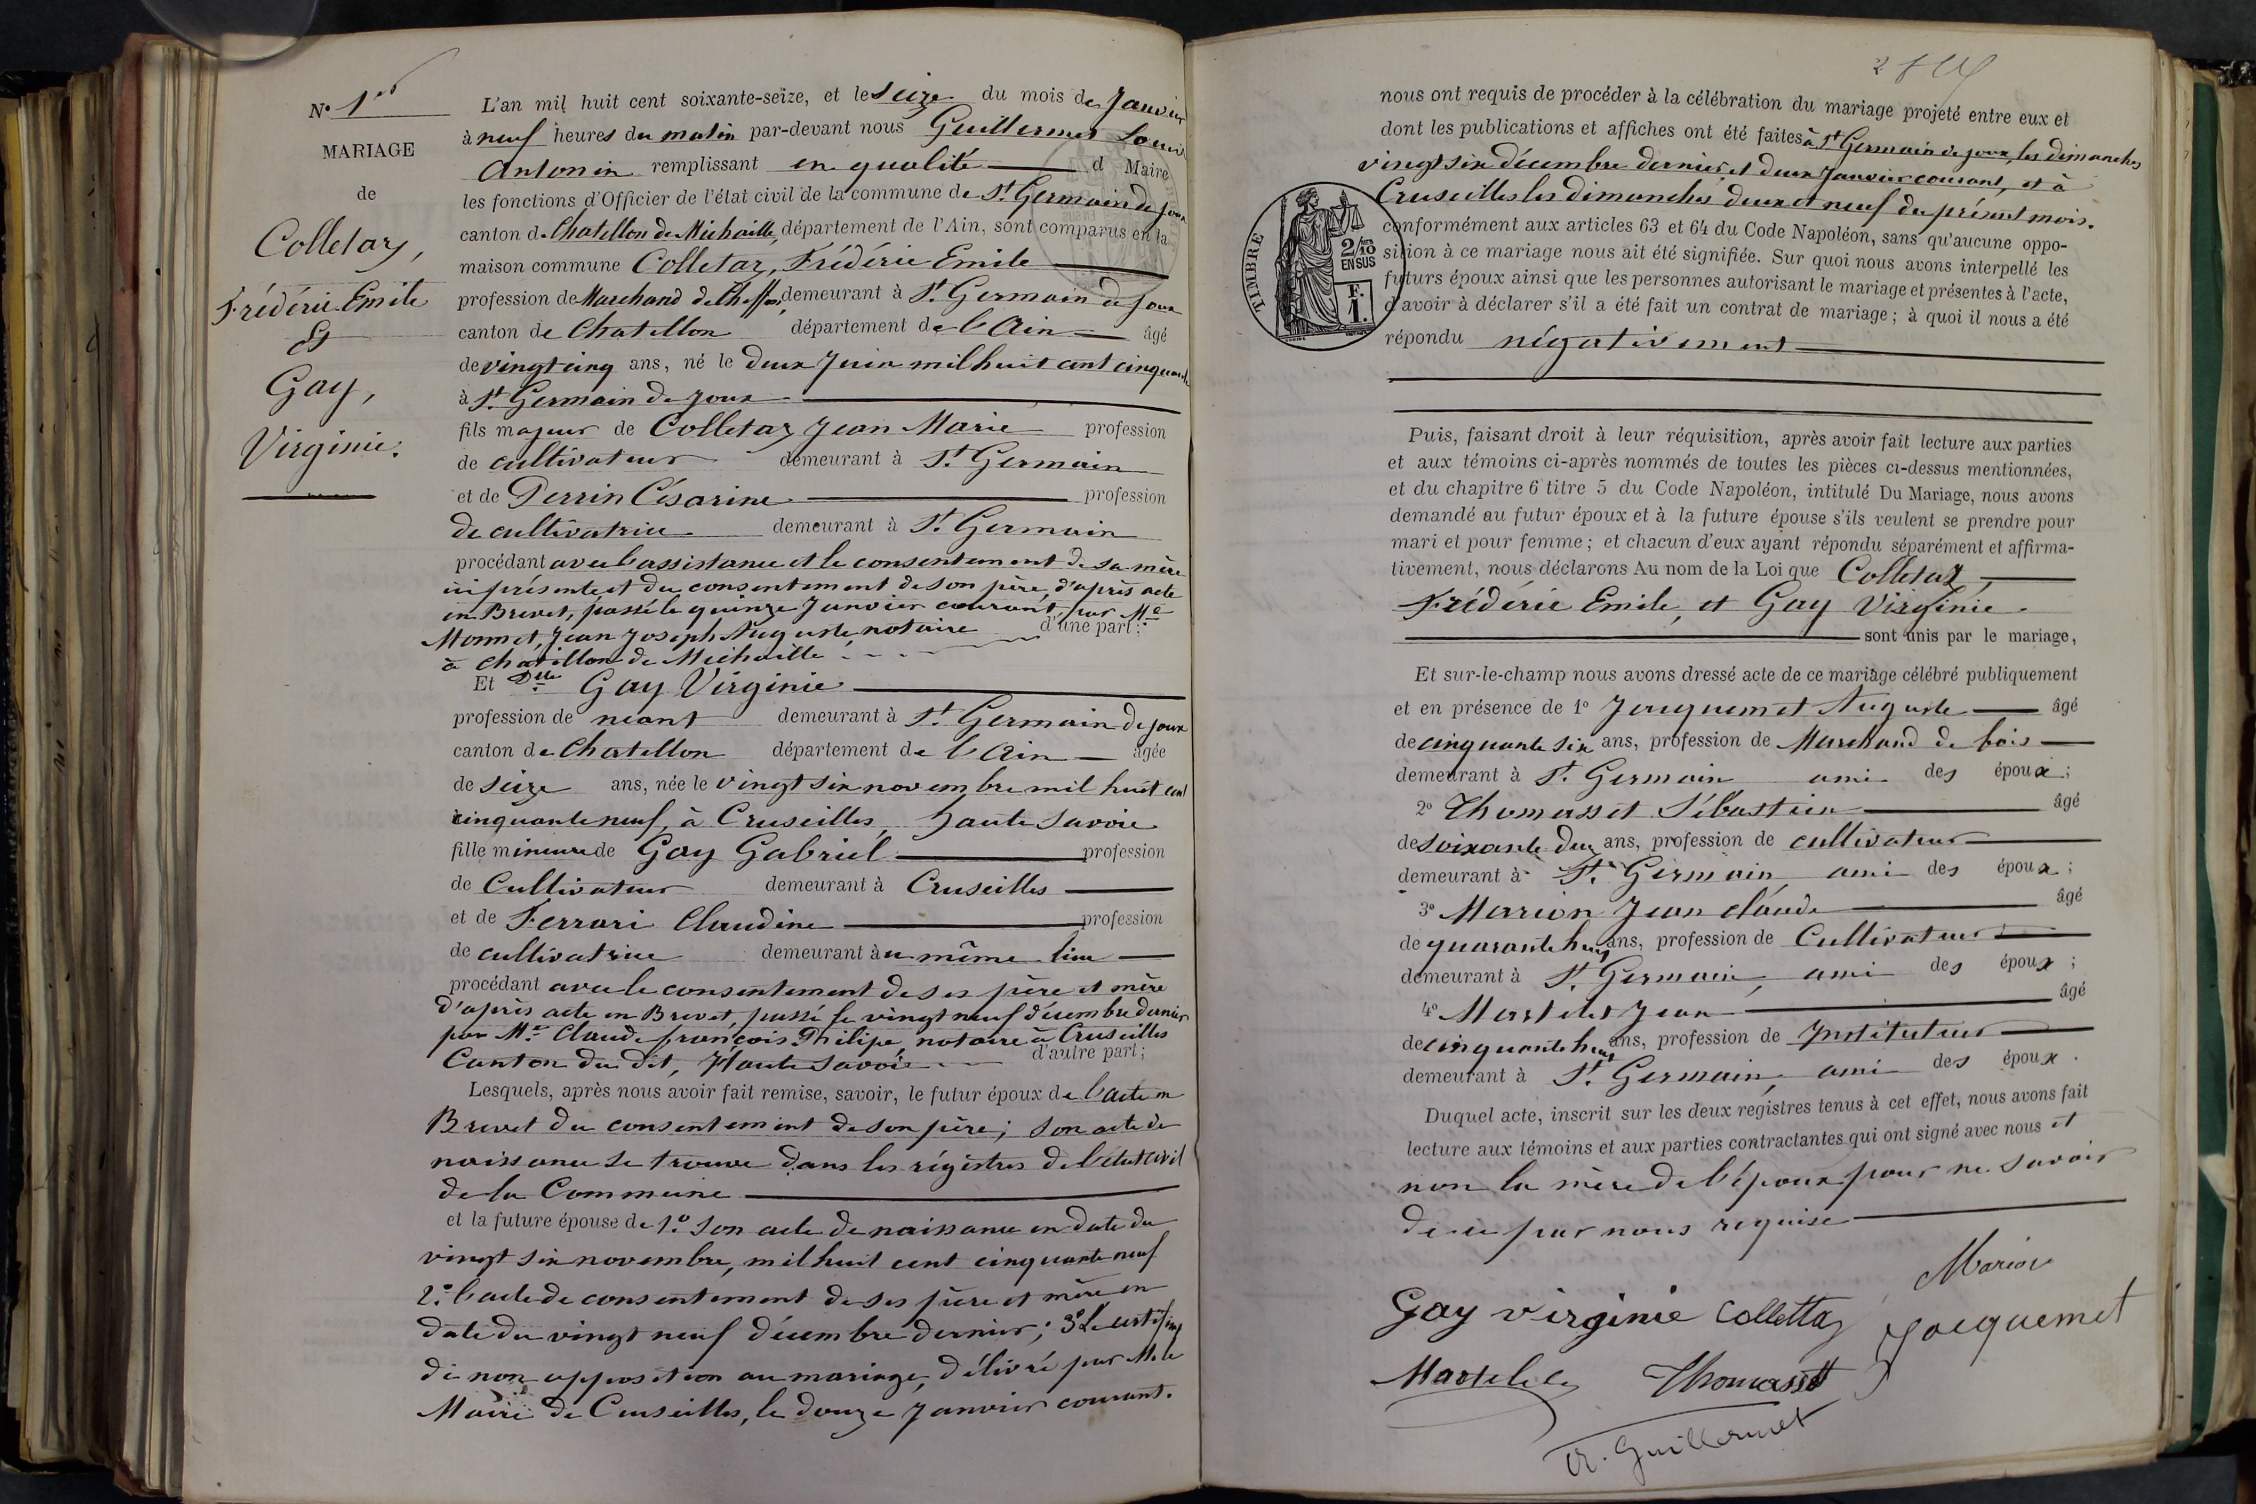 N° 1er
MARIAGE
de
Colletaz,
Frédéric Emile
&
Gay,
Virginie.
L'an mil huit cent soixante-seize, et le seize du mois de Janvier
à neuf heures du matin par-devant nous Guillermet Louis
Antonin remplissant en qualité d Maire
les fonctions d'Officier de l'état civil de la commune de St Germain de joux
canton de Chatillon de Michaille, département de l'Ain, sont comparus en la
maison commune Colletaz, Frédéric Emile
profession de Marchand de demeurant à St Germain de joux
canton de Chatillon département de l'Ain âgé
de vingt cinq ans, né le deux Juin mil huit cent cinquante
à St Germain de Joux
fils majeur de Colletaz Jean Marie profession
de cultivateur demeurant à St Germain
et de Perrin Césarine profession
de cultivatrice demeurant à St Germain
procédant avec l'assistance et le consentement de sa mère
ici présente et du consentement de son père, d'après acte
en Brevet, passé le quinze Janvier courant, par Me
Monnet, Jean Joseph Auguste, notaire d'une part;
à Chatillon de Michaille
Et Dlle Gay Virginie
profession de néant demeurant à St Germain de joux
canton de Chatillon département de l'Ain âgée
de seize ans, née le vingt six novembre mil huit cent
cinquante neuf, à Cruseilles, haute Savoie
fille mineure de Gay Gabriel profession
de Cultivateur demeurant à Cruseilles
et de Ferrari Claudine profession
de cultivatrice demeurant àu même lieu
procédant avec le consentement de ses père et mère
d'après acte en Brevet, passé le vingt neuf décembre dernier
par Me Claude françois Philipe, notaire à Cruseilles
Canton du dit, Haute Savoie d'autre part;
Lesquels, après nous avoir fait remise, savoir, le futur époux de l'acte en
Brevet du consentement de son père; son acte de
naissance se trouve dans les régistres de l'état civil
de la Commune
et la future épouse de 1.° son acte de naissance en date du
vingt six novembre, mil huit cent cinquante neuf
2.° l'acte de consentement de ses père et mère en
date du vingt neuf décembre dernier; 3° Le certificat
de non opposition au mariage, délivré par M. le
Maire de Cruseilles, le douze Janvier courant.
nous ont requis de procéder à la célébration du mariage projeté entre eux et
dont les publications et affiches ont été faites à St Germain de joux, les dimanches
vingt six décembre dernier et deux Janvier courant, et à
Cruseilles les dimanches deux et neuf du présent mois.
TIMBRE
2/10
EN SUS
F.
1.
conformément aux articles 63 et 64 du Code Napoléon, sans qu'aucune oppo-
sition à ce mariage nous ait été signifiée. Sur quoi nous avons interpellé les
futurs époux ainsi que les personnes autorisant le mariage et présentes à l'acte,
d'avoir à déclarer s'il a été fait un contrat de mariage; à quoi il nous a été
répondu négativement
Puis, faisant droit à leur réquisition, après avoir fait lecture aux parties
et aux témoins ci-après nommés de toutes les pièces ci-dessus mentionnées,
et du chapitre 6 titre 5 du Code Napoléon, intitulé Du Mariage, nous avons
demandé au futur époux et à la future épouse s'ils veulent se prendre pour
mari et pour femme; et chacun d'eux ayant répondu séparément et affirma-
tivement, nous déclarons Au nom de la Loi que Colletaz,
Frédéric Emile, et Gay Virginie.
sont unis par le mariage,
Et sur-le-champ nous avons dressé acte de ce mariage célébré publiquement
et en présence de 1° Jacquemet Auguste âgé
de cinquante six ans, profession de Marchand de bois
demeurant à St Germain ami des époux;
2° Thomasset Sébastien âgé
de soixante deux ans, profession de cultivateur
demeurant à St Germain, ami des époux;
3° Marion Jean Claude âgé
de quarante huit ans, profession de Cultivateur
demeurant à St Germain, ami des époux;
4° Martelet Jean âgé
de cinquante huit ans, profession de Instituteur
demeurant à St Germain, ami des époux.
Duquel acte, inscrit sur les deux registres tenus à cet effet, nous avons fait
lecture aux témoins et aux parties contractantes qui ont signé avec nous et
non la mère de l'époux pour ne savoir
de ce par nous requise
Marion
Gay virginie Collettaz Jacquemet
Martelet Thomasset
A. Guillermet